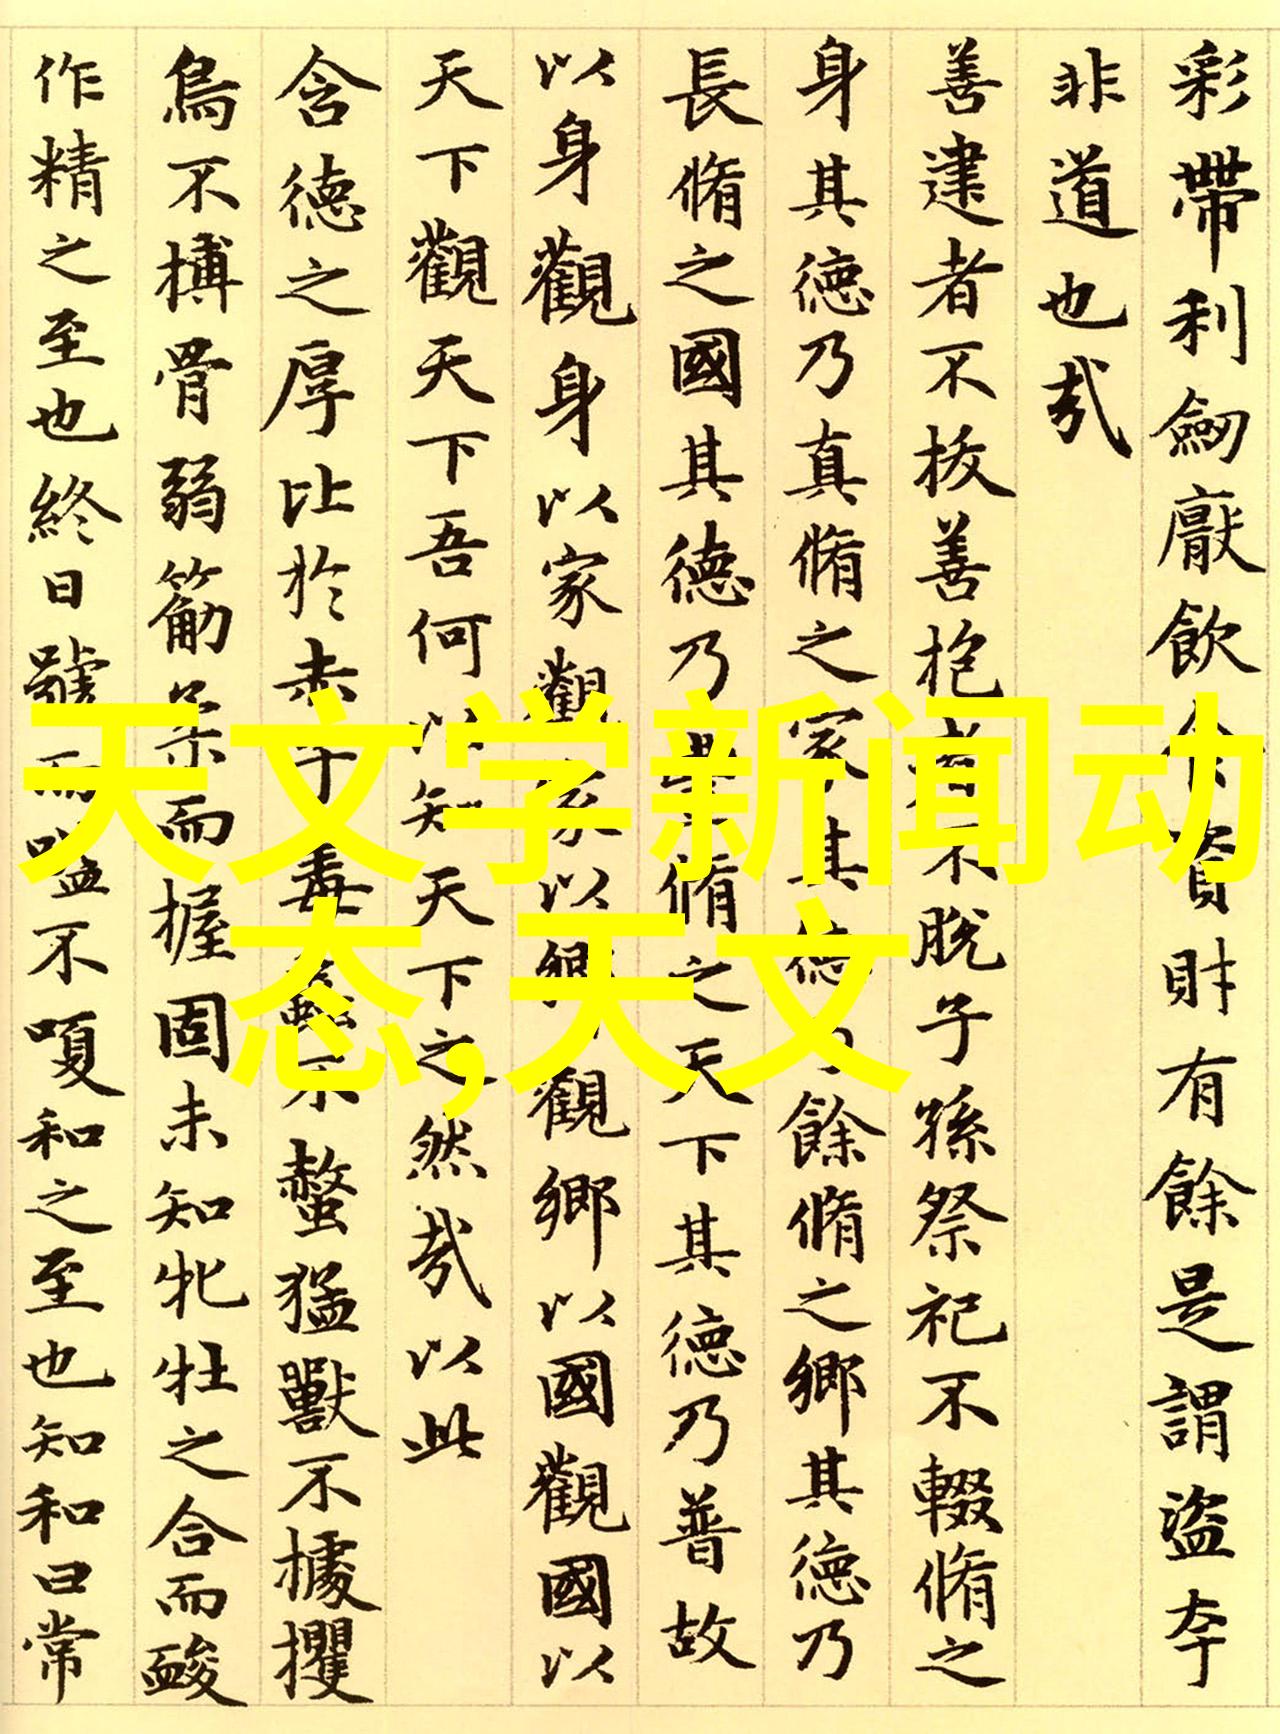 彩帶利劒猒飲食資財有餘是謂盜夸
非道也㢤
善建者不拔善抱者不脫子孫祭祀不輟脩之
身其德乃真脩之家其德乃餘脩之鄉其德乃
長脩之國其德乃豐脩之天下其德乃普故
以身觀身以家觀家以鄉觀鄉以國觀國以
天下觀天下吾何以知天下之然㢤以此
含德之厚比於赤子毒蟲不螫猛獸不據攫
鳥不搏骨弱筋柔而握固未知牝牡之合而酸
作精之至也終日號而嗌不嗄和之至也知和曰常
天文学新闻动
态,天文